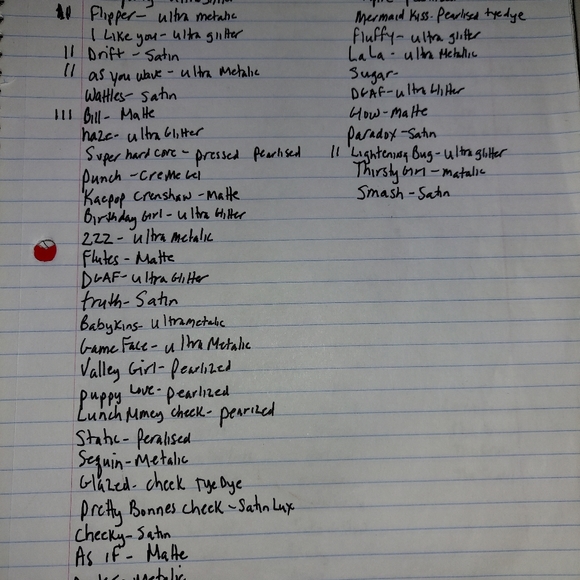 ll Flipper- ultra metalic
I Like you- ultra glitter
ll Drift- Satin
ll as you wave- ultra Metalic
Wattles- Satin
lll Bill- Matte
haze- ultra Glitter
Super hard core- pressed pearlised
Punch- Creme Gel
Kaepop Crenshaw- Matte
Birthday Girl- ultra Glitter
ZZZ- ultra metalic
Flutes- Matte
DGAF- ultra Glitter
truth- Satin
Babykins- ultrametalic
Game Face- ultra Metalic
Valley Girl- Pearlized
puppy Love- pearlized
Lunch Money Cheek- pearized
Static- Peralised
Sequin- Metalic
Glazed- cheek Tye Dye
Pretty Bonnes cheek- Satin Lux
Cheeky- Satin
As IF- Matte
Metalic
Mermaid Kiss- Pearlised tye dye
Fluffy- ultra glitter
LaLa- ultra Metalic
Sugar-
DGAF- ultra Glitter
Glow- Matte
Paradox- Satin
ll Lightening Bug- ultra glitter
Thirsty Girl- matalic
Smash- Satin